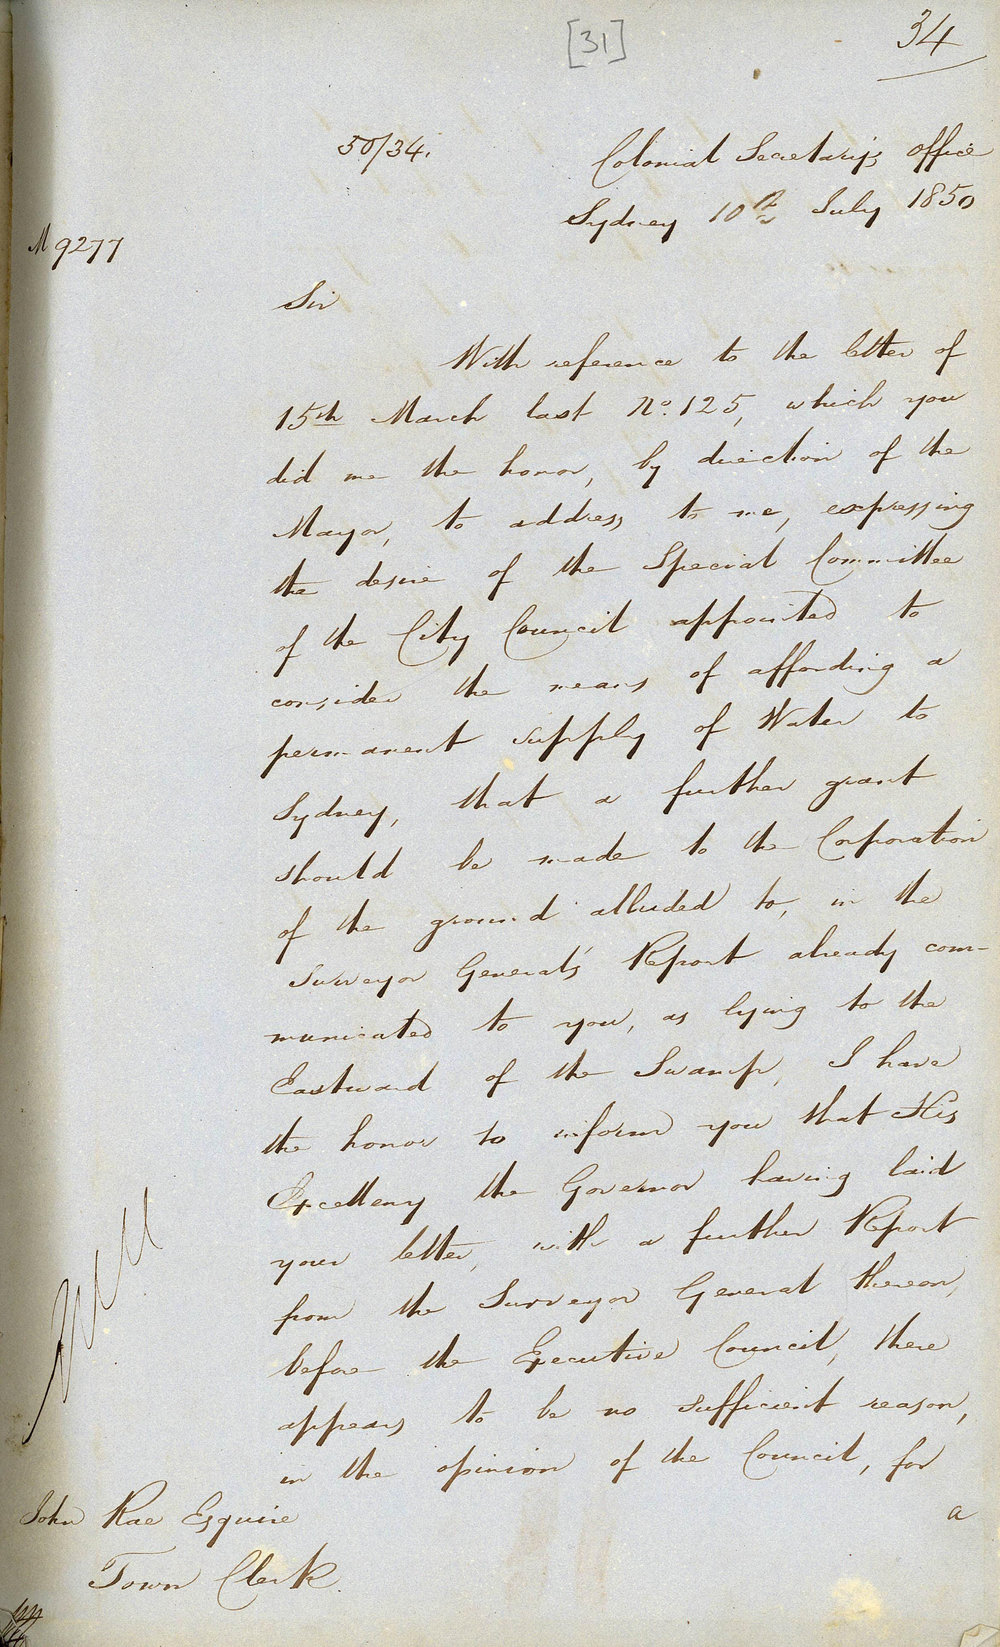 [31]
34
50/34.
Colonial Secretary's Office
Sydney 10th July 1850
M 9277
Sir
With reference to the letter of
15th March last No. 125, which you
did me the honor, by direction of the
Mayor, to address to me, expressing
the desire of the Special Committee
of the City Council appointed to
consider the means of affording a
permanent supply of Water to
Sydney, that a further grant
should be made to the Corporation
of the ground alluded to, in the
Surveyor General's Report already com-
municated to you, as lying to the
Eastward of the Swamp, I have
the honor to inform you that His
Excellency the Governor having laid
your letter, with a further Report
from the Surveyor General thereon,
before the Executive Council, there
appears to be no sufficient reason,
in the opinion of the Council, for
a
John Rae Esquire
Town Clerk.